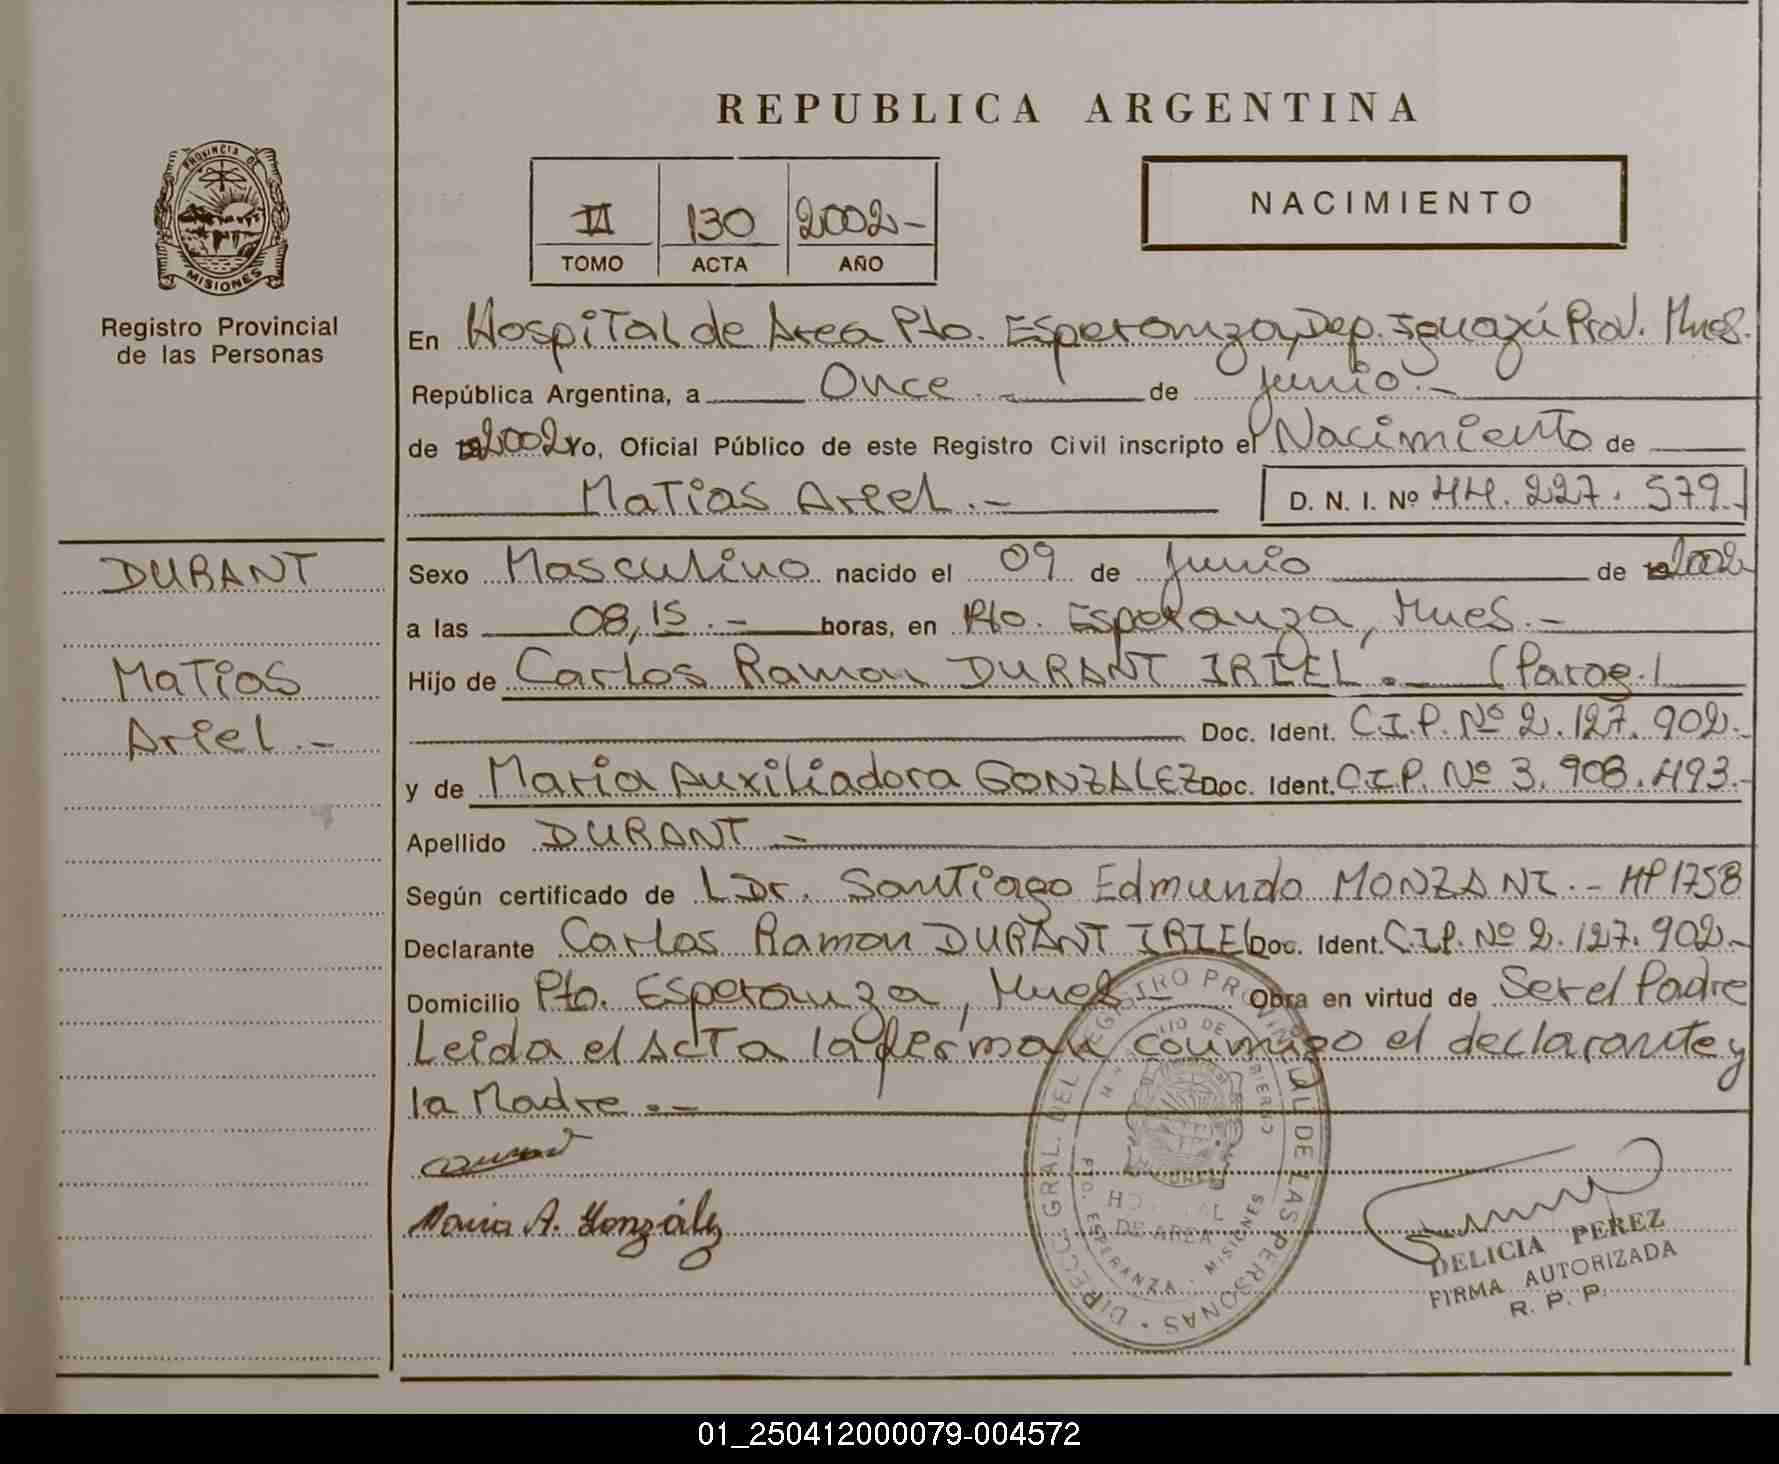 REPUBLICA ARGENTINA
PROVINCIA DE
MISIONES
Registro Provincial
de las Personas
II 130 2002-
TOMO ACTA AÑO
NACIMIENTO
En Hospital de Area Pto. Esperanza, Dep. Iguazú Prov. Mnes.
República Argentina, a Once.- de junio.-
de 2002 Yo, Oficial Público de este Registro Civil inscripto el Nacimiento de
Matias Ariel.- D. N. I. Nº 44.227.579.-
DURANT
Matias
Ariel.-
Sexo Masculino nacido el 09 de Junio de 2002
a las 08,15.- horas, en Pto. Esperanza, Mnes.-
Hijo de Carlos Ramon DURANT IRIEL.- (Parag.)
Doc. Ident. C.I.P. Nº 2.127.902.-
y de Maria Auxiliadora GONZALEZ Doc. Ident. C.I.P. Nº 3.908.493.-
Apellido DURANT-
Según certificado de Dr. Santiago Edmundo MONZANI.- MP1758
Declarante Carlos Ramon DURANT IRIEL Doc. Ident. C.I.P. Nº 2.127.902-
Domicilio Pto. Esperanza, Mnes- Obra en virtud de Ser el Padre
Leida el Acta la firman conmigo el declarante y
la Madre.-
Durant
Maria A. González
DIRECC. GRAL. DEL REGISTRO PROVINCIAL DE LAS PERSONAS
HOSPITAL
DE AREA
PTO. ESPERANZA - MISIONES
DELICIA PEREZ
FIRMA AUTORIZADA
R. P. P.
01_250412000079-004572